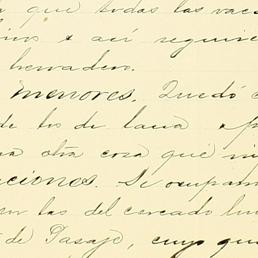 que todas las vac
asi seguire
herradero.
menores. Quedó
de los de lana
otra cosa que
ciones. Se ocupan
las del cercado
de Pasaje, cuyo que